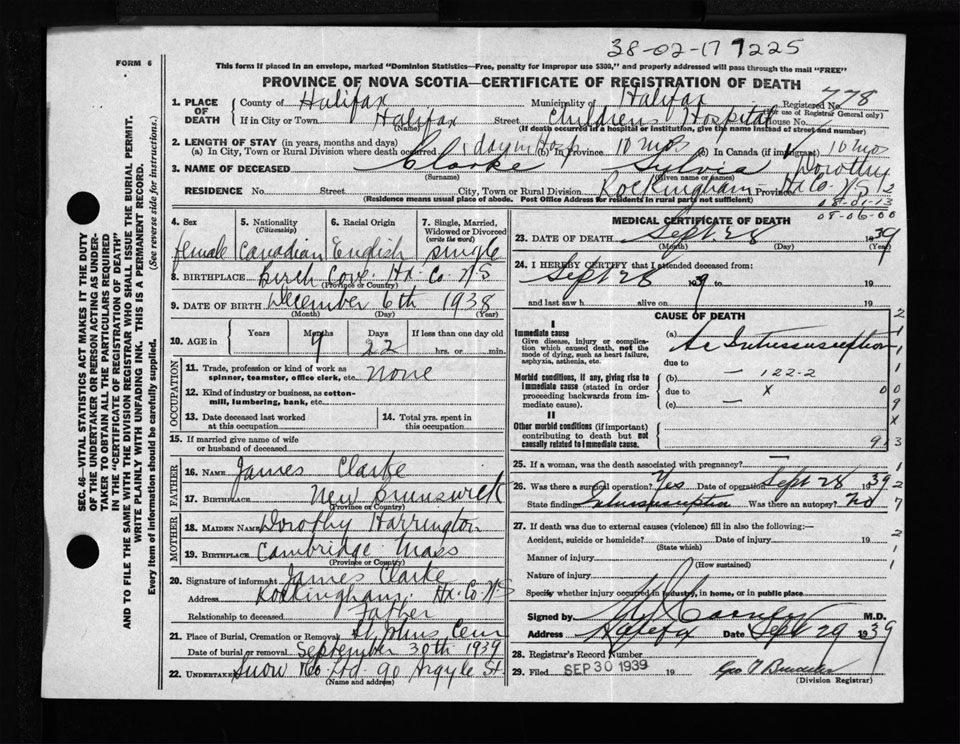 38-02-17 7225
FORM 6
This form if placed in an envelope, marked "Dominion Statistics—Free, penalty for improper use $300," and properly addressed will pass through the mail "FREE"
PROVINCE OF NOVA SCOTIA—CERTIFICATE OF REGISTRATION OF DEATH
1. PLACE OF DEATH County of Halifax Municipality of Halifax Registered No. 778
(For use of Registrar General only)
If in City or Town Halifax Street Childrens Hospital House No.
(Name) (If death occurred in a hospital or institution, give the name instead of street and number)
2. LENGTH OF STAY (in years, months and days)
(a) In City, Town or Rural Division where death occurred 1 day in Hosp (b) In Province 10 mos (c) In Canada (if immigrant) 10 mos
3. NAME OF DECEASED Clarke Sylvia Dorothy
(Surname) (Given name or names)
RESIDENCE No. Street City, Town or Rural Division Rockingham Province Hx Co. N S
(Residence means usual place of abode. Post Office Address for residents in rural parts not sufficient)
12
08-01-13
08-06-00
4. Sex female
5. Nationality (Citizenship) Canadian
6. Racial Origin English
7. Single, Married, Widowed or Divorced (write the word) single
8. BIRTHPLACE Birch Cove. Hx. Co. N S
(Province or Country)
9. DATE OF BIRTH December 6th 1938
(Month) (Day) (Year)
10. AGE in Years Months 9 Days 22 If less than one day old hrs. or min.
OCCUPATION
11. Trade, profession or kind of work as spinner, teamster, office clerk, etc. none
12. Kind of industry or business, as cotton-mill, lumbering, bank, etc.
13. Date deceased last worked at this occupation
14. Total yrs. spent in this occupation
15. If married give name of wife or husband of deceased
FATHER
16. NAME James Clarke
17. BIRTHPLACE New Brunswick
(Province or Country)
MOTHER
18. MAIDEN NAME Dorothy Harrington
19. BIRTHPLACE Cambridge Mass
(Province or Country)
20. Signature of informant James Clarke
Address Rockingham. Hx. Co. N S
Relationship to deceased Father
21. Place of Burial, Cremation or Removal St Johns Cem
Date of burial or removal September 30th 1939
22. UNDERTAKER Snow Co. Ltd. 90 Argyle St
(Name and address)
MEDICAL CERTIFICATE OF DEATH
23. DATE OF DEATH Sept. 28 1939
(Month) (Day) (Year)
24. I HEREBY CERTIFY that I attended deceased from:
Sept 28 1939 to 19
and last saw h alive on 19
CAUSE OF DEATH
I
Immediate cause
Give disease, injury or complication which caused death, not the mode of dying, such as heart failure, asphyxia, asthenia, etc.
(a) Ac Intussusception
due to
Morbid conditions, if any, giving rise to immediate cause (stated in order proceeding backwards from immediate cause).
(b) — 122-2
due to X
(c) —
II
Other morbid conditions (if important) contributing to death but not causally related to immediate cause.
25. If a woman, was the death associated with pregnancy? —
26. Was there a surgical operation? Yes Date of operation Sept 28 1939
State finding Intussusception Was there an autopsy? No
27. If death was due to external causes (violence) fill in also the following:
Accident, suicide or homicide? Date of injury 19
(State which)
Manner of injury
(How sustained)
Nature of injury
Specify whether injury occurred in industry, in home, or in public place
Signed by M.D.
Address Halifax Date Sept 29 1939
28. Registrar's Record Number
29. Filed SEP 30 1939 19
(Division Registrar)
SEC. 46—VITAL STATISTICS ACT MAKES IT THE DUTY
OF THE UNDERTAKER OR PERSON ACTING AS UNDER-
TAKER TO OBTAIN ALL THE PARTICULARS REQUIRED
IN THE "CERTIFICATE OF REGISTRATION OF DEATH"
AND TO FILE THE SAME WITH THE DIVISION REGISTRAR WHO SHALL ISSUE THE BURIAL PERMIT.
WRITE PLAINLY WITH UNFADING INK. THIS IS A PERMANENT RECORD.
Every item of information should be carefully supplied. (See reverse side for instructions.)